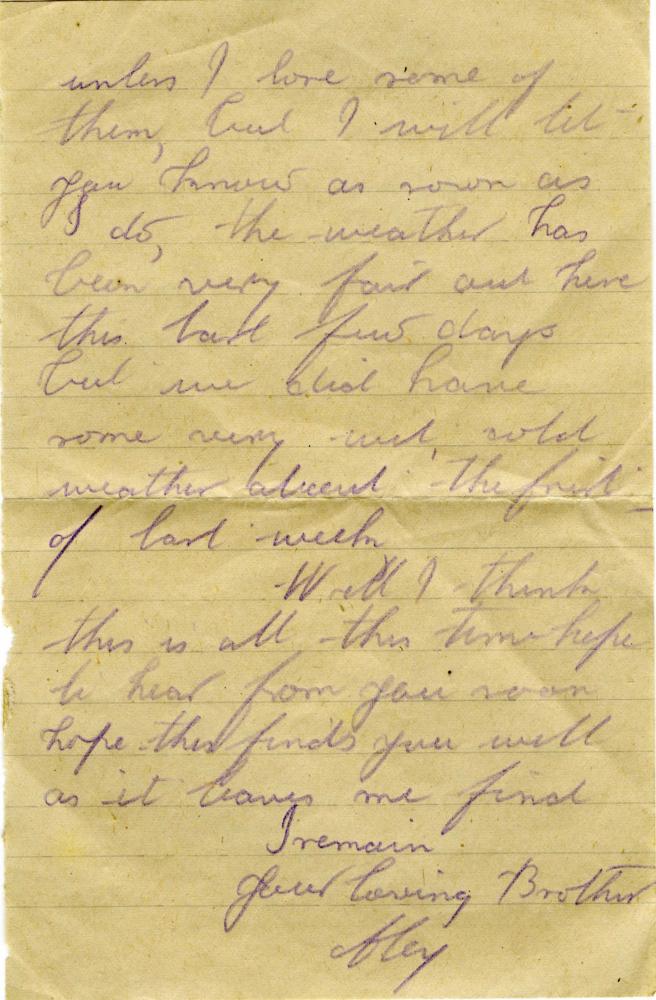 unless I lose some of
them, but I will let
you know as soon as
I do, the weather has
been very fair out here
this last few days
but we did have
some very wet, cold
weather about the first
of last week
Well I think
this is all this time hope
to hear from you soon
hope this finds you well
as it leaves me find
I remain
your loving Brother
Aley